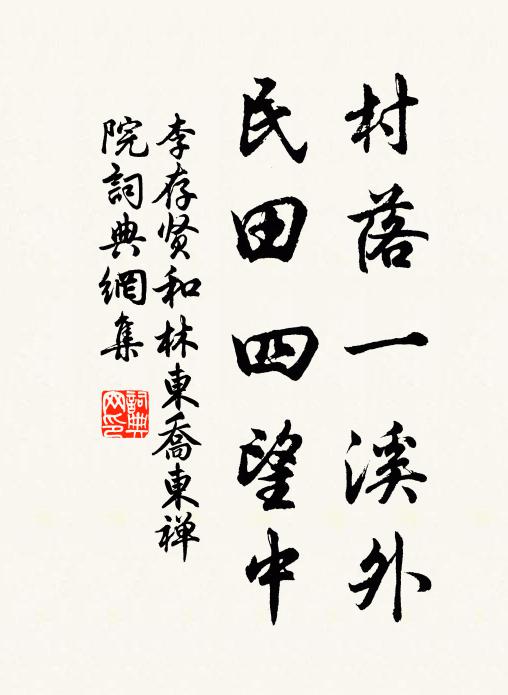 村落一溪外
民田四望中
李存贤和林東喬東禅
院詞典網集
詞典网印